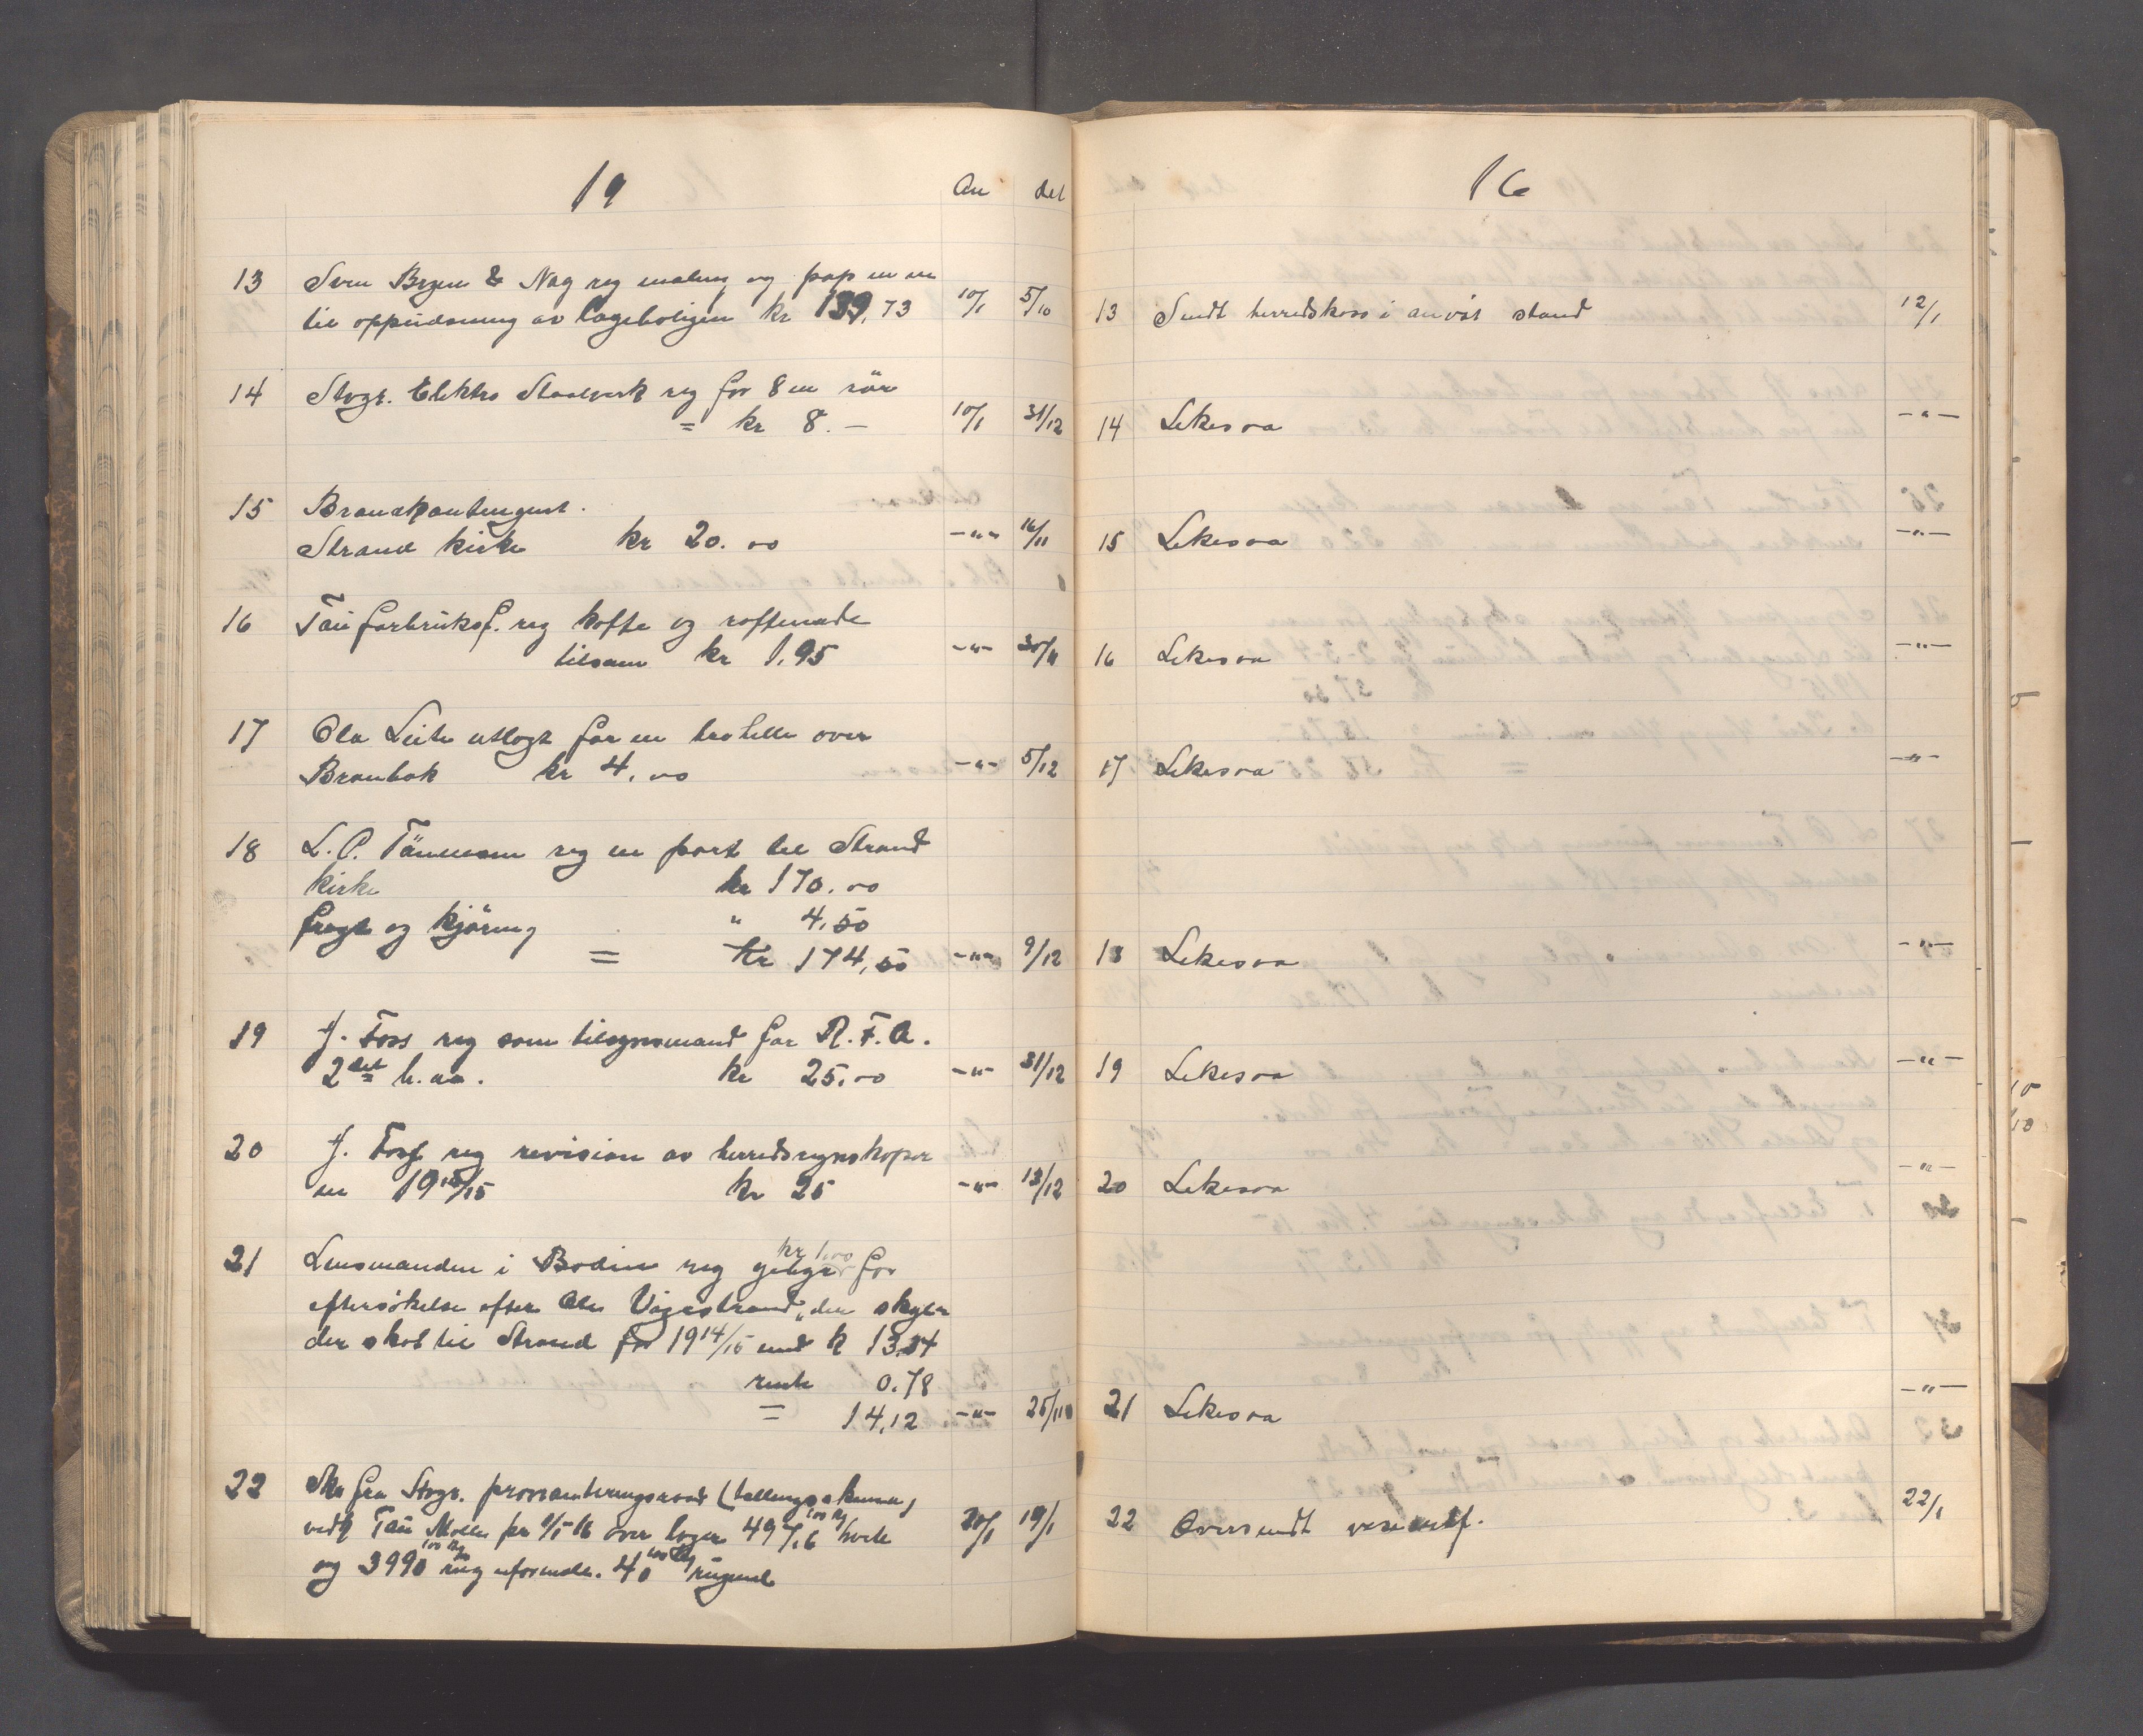 19 An dat
13 Sven Bryne & Nag reg maling og pap m m
til oppudsning av Lægeboligen kr 139,73 10/1 5/10
14 Stvgr. Elektro Staalverk reg for 8 m rör
= kr 8.— 10/1 31/12
15 Brandkontingent.
Strand kirke kr 20.00 —"— 16/11
16 Tau forbruksf. reg kaffe og
tilsam kr 1,95 —"— 30/11
17 Ola Leite utlagt for en over
kr 4,00 —"— 5/12
18 L. P. Tönnesen reg en port til Strand
kirke kr 170.00
fragt og kjöring " 4,50
= kr 174,50 —"— 9/12
19 J. Foss reg som tilsynsmand for R. F. A.
2det h. aa. kr 25,00 —"— 31/12
20 J. Foss reg revision av herredsregnskaper
kr 25 —"— 13/12
21 Lensmanden i Bodin reg gebyr kr 1,00 for
eftersökelse efter Ole Vagestrand, der skyl-
der skat til Strand for 1914/15 med k 13.34
rente 0.78
= 14,12 —"— 25/11
22 Skr fra Stvgr. provianteringsraad (tellingsskema)
vedk Tau Mölle pr over lager 497,6 100 kg hvete
og 3990 100 kg rug uformalt. 40 100 kg rugmel 20/1 19/1
16
13 Sendt herredskass i anvist stand 12/1
14 Likesaa —"—
15 Likesaa —"—
16 Likesaa —"—
17 Likesaa —"—
18 Likesaa —"—
19 Likesaa —"—
20 Likesaa —"—
21 Likesaa —"—
22 Oversendt 22/1